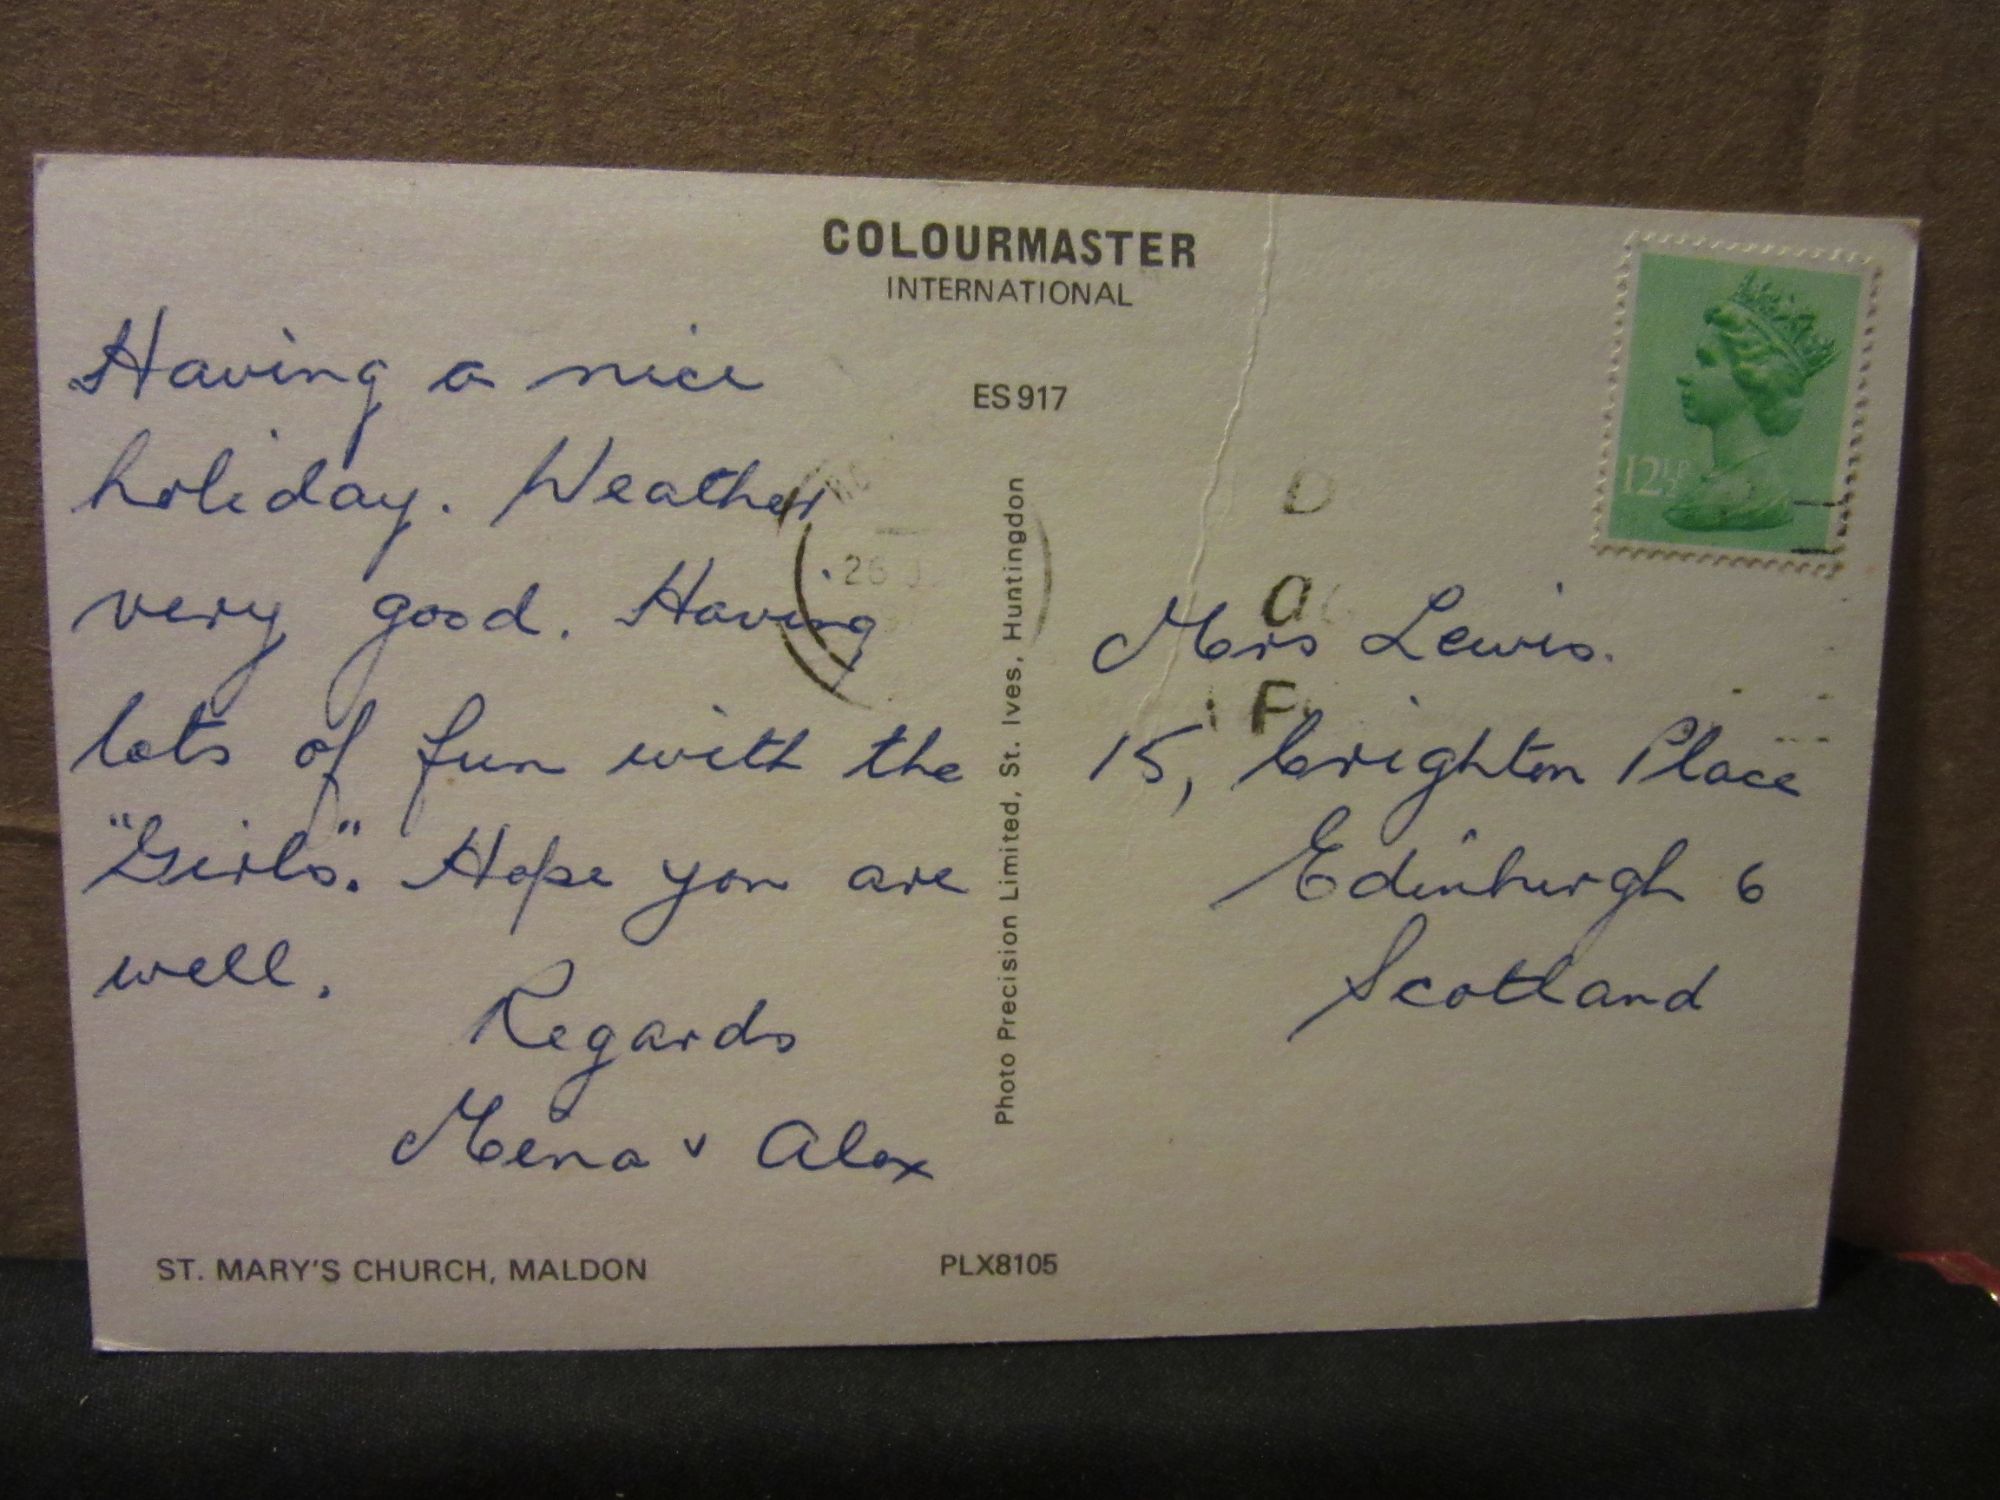 COLOURMASTER
INTERNATIONAL
ES 917
Having a nice
holiday. Weather
very good. Having
lots of fun with the
"Girls". Hope you are
well.
Regards
Mena & Alex
ST. MARY'S CHURCH, MALDON
PLX8105
Photo Precision Limited, St. Ives, Huntingdon
12½P
26
Mrs Lewis.
15, Brighton Place
Edinburgh 6
Scotland